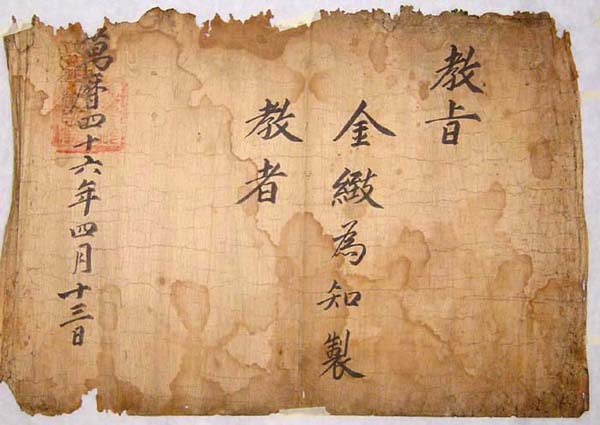 教旨
金緻為知製
教者
萬曆四十六年四月十三日